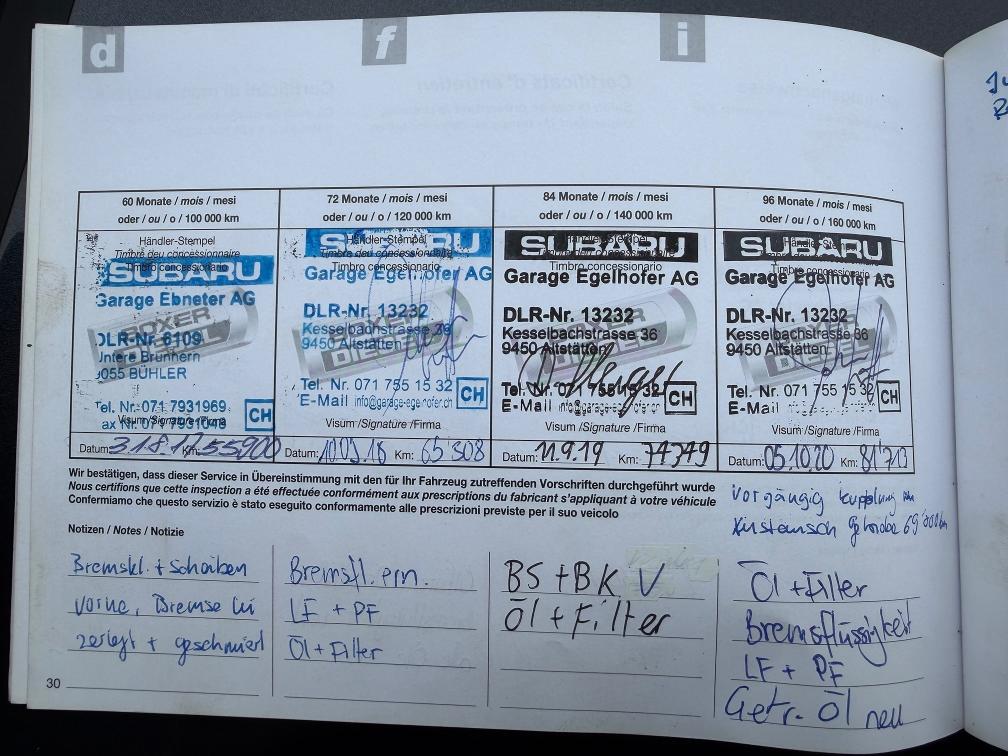 d f i
60 Monate / mois / mesi
oder / ou / o / 100 000 km
Händler-Stempel
Timbre du concessionnaire
Timbro concessionario
SUBARU
Garage Ebneter AG
BOXER DIESEL
DLR-Nr. 6109
Untere Brunnern
9055 BÜHLER
Tel. Nr. 071 7931969
Fax Nr. 071 7931049
CH
Visum/Signature/Firma
Datum: 31.8.17 Km: 55900
72 Monate / mois / mesi
oder / ou / o / 120 000 km
Händler-Stempel
Timbre du concessionnaire
Timbro concessionario
SUBARU
Garage Egelhofer AG
DLR-Nr. 13232
Kesselbachstrasse 36
9450 Altstätten
Tel. Nr. 071 755 15 32
E-Mail info@garage-egelhofer.ch
CH
Visum /Signature /Firma
Datum: 10.09.18 Km: 65'308
84 Monate / mois / mesi
oder / ou / o / 140 000 km
SUBARU
Timbro concessionario
Garage Egelhofer AG
DLR-Nr. 13232
Kesselbachstrasse 36
9450 Altstätten
Tel. Nr. 071 755 15 32
E-Mail info@garage-egelhofer.ch
CH
Visum /Signature /Firma
Datum: 11.9.19 Km: 74349
96 Monate / mois / mesi
oder / ou / o / 160 000 km
SUBARU
Timbre concessionaire
Garage Egelhofer AG
DLR-Nr. 13232
Kesselbachstrasse 36
9450 Altstätten
Tel. Nr. 071 755 15 32
E-Mail
CH
Visum /Signature /Firma
Datum: 05.10.20 Km: 81'713
Wir bestätigen, dass dieser Service in Übereinstimmung mit den für Ihr Fahrzeug zutreffenden Vorschriften durchgeführt wurde
Nous certifions que cette inspection a été effectuée conformément aux prescriptions du fabricant s'appliquant à votre véhicule
Confermiamo che questo servizio è stato eseguito conformamente alle prescrizioni previste per il suo veicolo
Vorgängig Kupplung
69'000 km
Notizen / Notes / Notizie
Bremskl. + Scheiben
vorne, Bremse hi
zerlegt + geschmiert
Bremsfl. ern.
LF + PF
Öl + Filter
BS + BK V
Öl + Filter
Öl + Filter
Bremsflüssigkeit
LF + PF
Getr. Öl neu
30